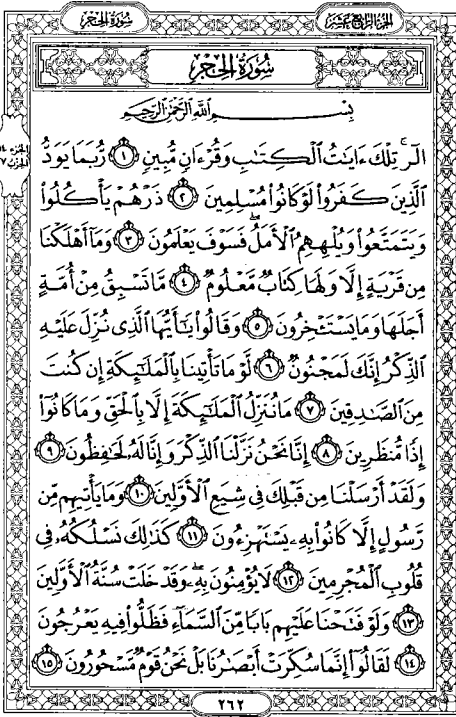 سُورَةُ الحِجْر
الجُزْءُ الرَّابِعَ عَشَرَ
سُورَةُ الحِجْرِ
بِسْمِ اللَّهِ الرَّحْمَٰنِ الرَّحِيمِ
الٓر ۚ تِلْكَ ءَايَٰتُ ٱلْكِتَٰبِ وَقُرْءَانٍ مُّبِينٍ ١ رُّبَمَا يَوَدُّ
ٱلَّذِينَ كَفَرُوا۟ لَوْ كَانُوا۟ مُسْلِمِينَ ٢ ذَرْهُمْ يَأْكُلُوا۟
وَيَتَمَتَّعُوا۟ وَيُلْهِهِمُ ٱلْأَمَلُ ۖ فَسَوْفَ يَعْلَمُونَ ٣ وَمَآ أَهْلَكْنَا
مِن قَرْيَةٍ إِلَّا وَلَهَا كِتَابٌ مَّعْلُومٌ ٤ مَّا تَسْبِقُ مِنْ أُمَّةٍ
أَجَلَهَا وَمَا يَسْتَـْٔخِرُونَ ٥ وَقَالُوا۟ يَٰٓأَيُّهَا ٱلَّذِى نُزِّلَ عَلَيْهِ
ٱلذِّكْرُ إِنَّكَ لَمَجْنُونٌ ٦ لَّوْ مَا تَأْتِينَا بِٱلْمَلَٰٓئِكَةِ إِن كُنتَ
مِنَ ٱلصَّٰدِقِينَ ٧ مَا نُنَزِّلُ ٱلْمَلَٰٓئِكَةَ إِلَّا بِٱلْحَقِّ وَمَا كَانُوٓا۟
إِذًا مُّنظَرِينَ ٨ إِنَّا نَحْنُ نَزَّلْنَا ٱلذِّكْرَ وَإِنَّا لَهُۥ لَحَٰفِظُونَ ٩
وَلَقَدْ أَرْسَلْنَا مِن قَبْلِكَ فِى شِيَعِ ٱلْأَوَّلِينَ ١٠ وَمَا يَأْتِيهِم مِّن
رَّسُولٍ إِلَّا كَانُوا۟ بِهِۦ يَسْتَهْزِءُونَ ١١ كَذَٰلِكَ نَسْلُكُهُۥ فِى
قُلُوبِ ٱلْمُجْرِمِينَ ١٢ لَا يُؤْمِنُونَ بِهِۦ ۖ وَقَدْ خَلَتْ سُنَّةُ ٱلْأَوَّلِينَ
١٣ وَلَوْ فَتَحْنَا عَلَيْهِم بَابًا مِّنَ ٱلسَّمَآءِ فَظَلُّوا۟ فِيهِ يَعْرُجُونَ
١٤ لَقَالُوٓا۟ إِنَّمَا سُكِّرَتْ أَبْصَٰرُنَا بَلْ نَحْنُ قَوْمٌ مَّسْحُورُونَ ١٥
٢٦٢